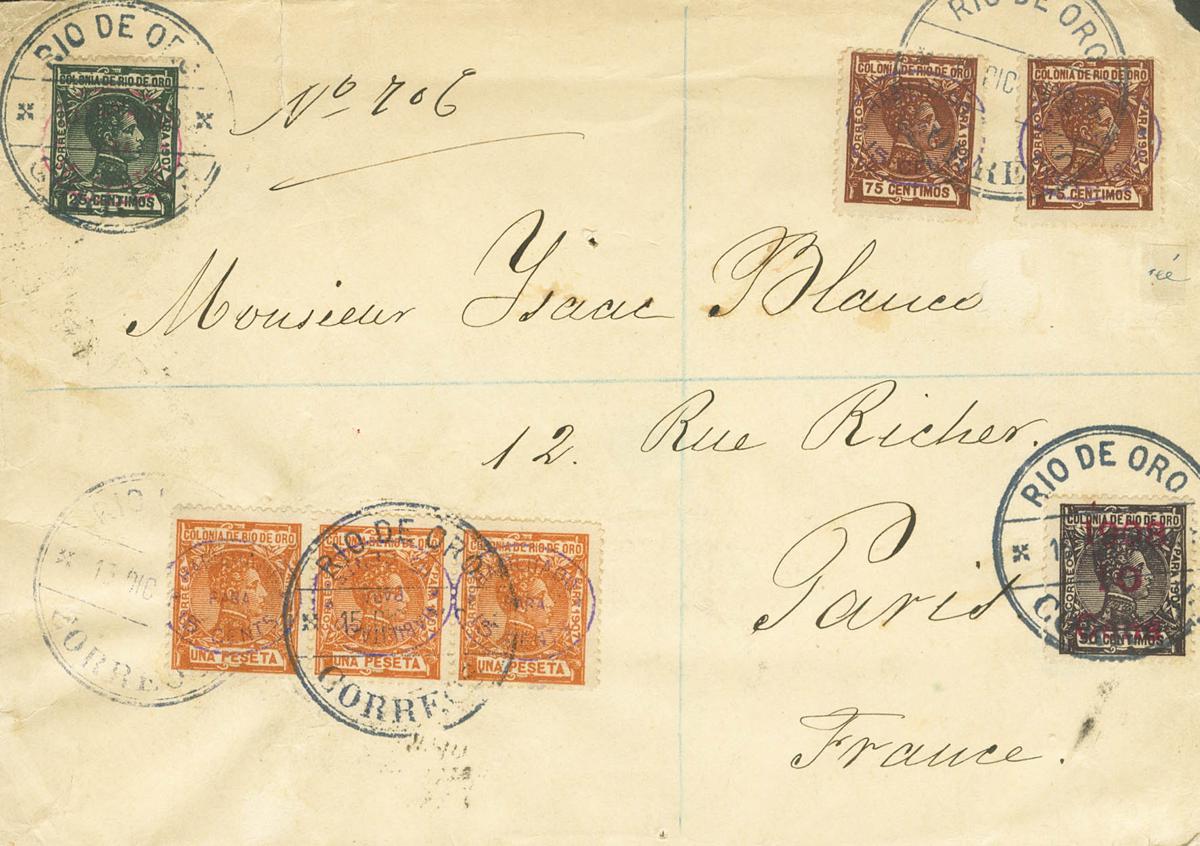 RIO DE ORO
COLONIA DE RIO DE ORO
CORREOS
PARA 1907
25 CENTIMOS
Nº 706
RIO DE ORO
DIC
COLONIA DE RIO DE ORO
CORREOS
PARA 1907
75 CENTIMOS
COLONIA DE RIO DE ORO
PARA 1907
75 CENTIMOS
Monsieur Ysaac Blanco
12. Rue Richer.
Paris
France.
RIO DE ORO
COLONIA DE RIO DE ORO
CORREOS
PARA 1907
50 CENTIMOS
15 DIC
CORREOS
COLONIA DE RIO DE ORO
CORREOS
PARA
15 CENTS
UNA PESETA
RIO DE ORO
15
CORREOS
UNA PESETA
COLONIA DE RIO DE ORO
CORREOS
PARA 1907
UNA PESETA